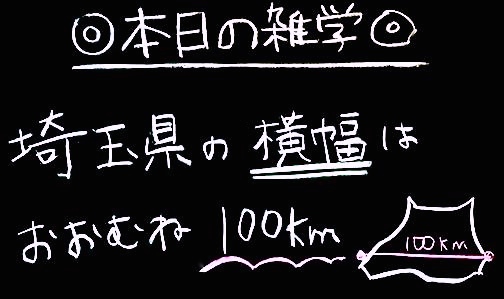 ◎本日の雑学◎
埼玉県の横幅は
おおむね100km
100km